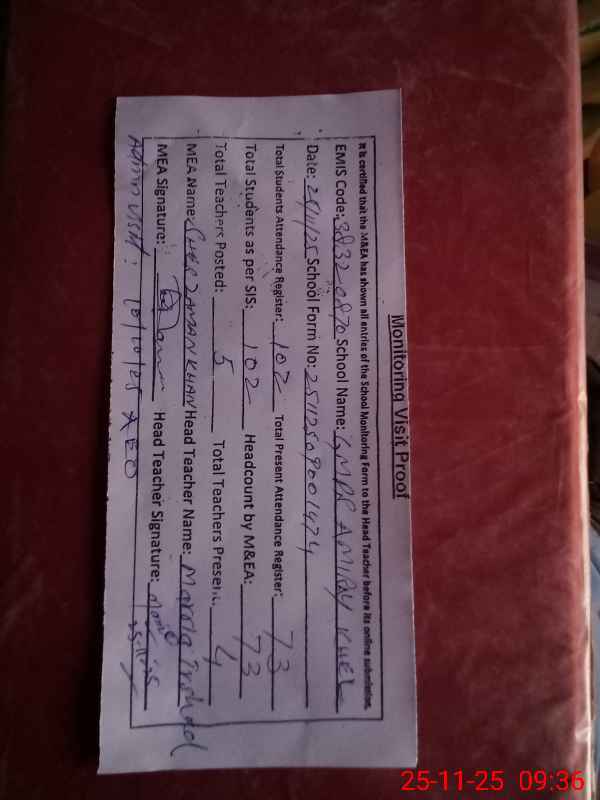 Monitoring Visit Proof
It is certified that the M&EA has shown all entries of the School Monitoring Form to the Head Teacher before its online submission.
EMIS Code: 38320870 School Name: GMPS AMIRAY KHEL
Date: 25/11/25 School Form No: 25112509001474
Total Students Attendance Register: 102 Total Present Attendance Register: 73
Total Students as per SIS: 102 Headcount by M&EA: 73
Total Teachers Posted: 5 Total Teachers Present: 4
MEA Name: SHER ZAMAN KHAN Head Teacher Name: Irshad
MEA Signature: Head Teacher Signature:
Admn visit: AEO
25-11-25 09:36